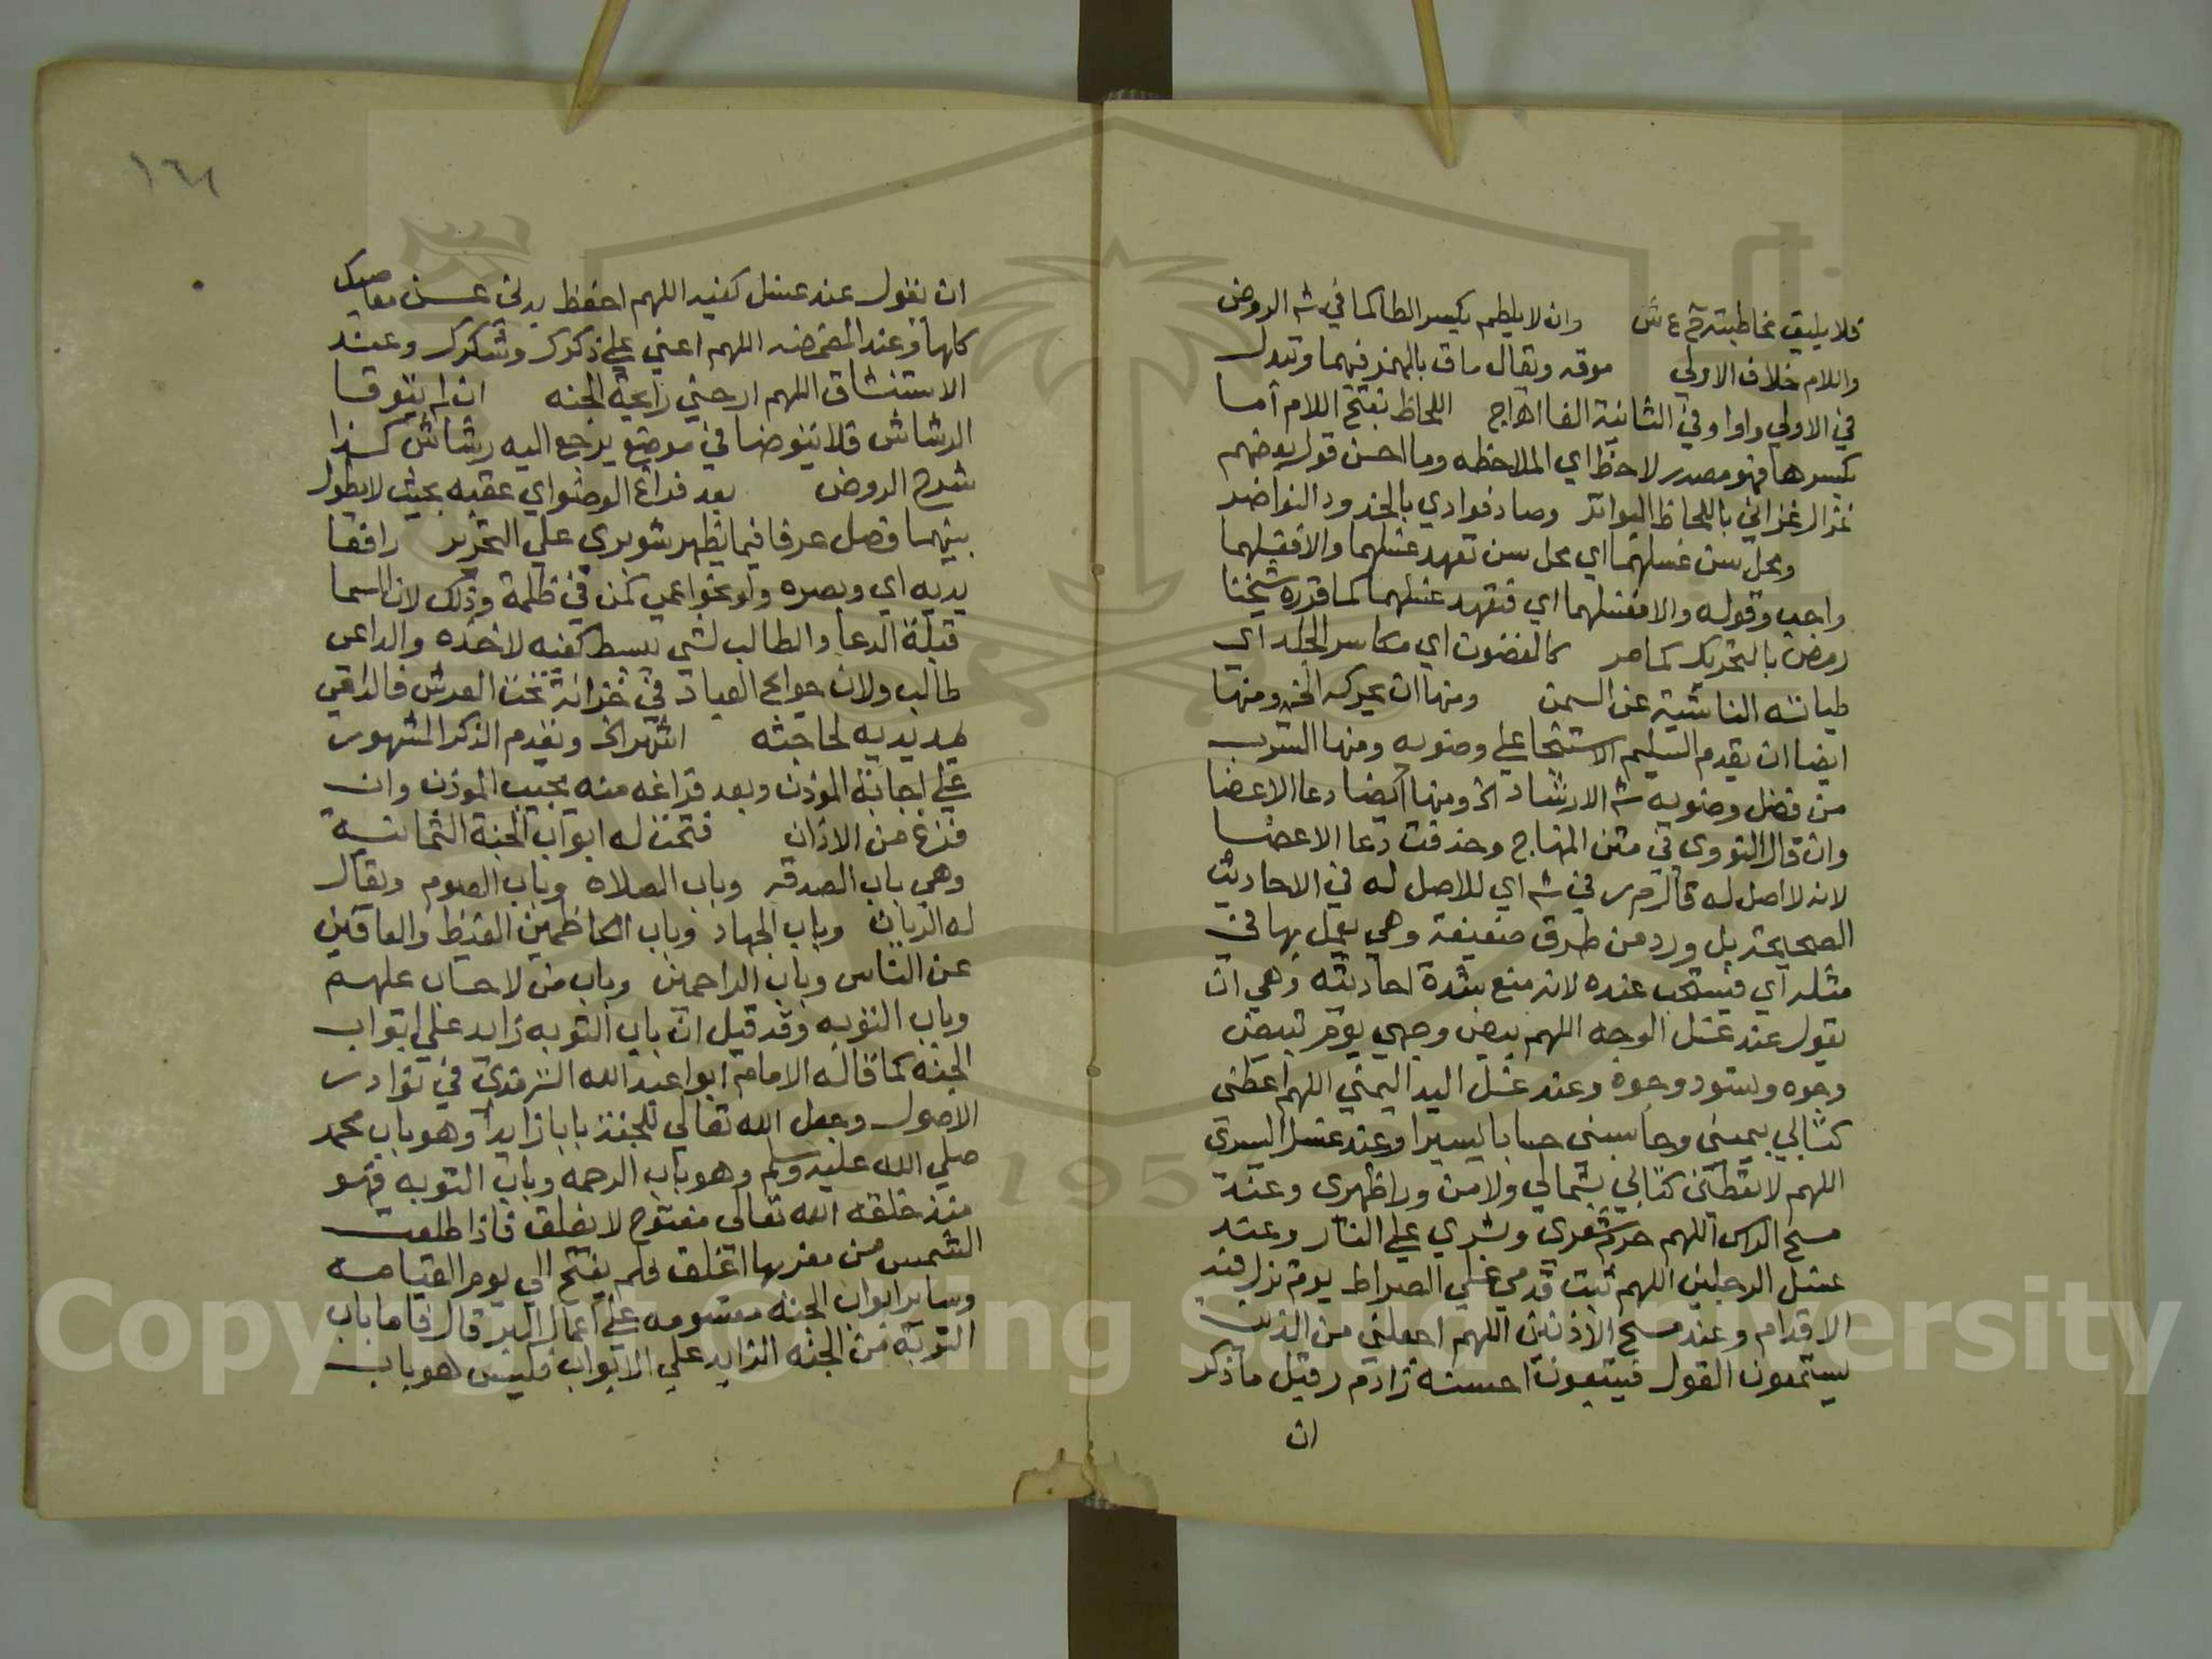 فلا يليق مخاطبته م ع ش وان لا يلطم بكسر الطا كما في شه الروض
واللام خلاف الاولي موقه ويقال ماق بالهمز فيهما وتبدل
في الاولي واوا وفي الثانية الفا اهاج اللحاظ بفتح اللام اما
بكسرها فهو مصدر لاحظ اي الملاحظه وما احسن قول بعضهم
غزال غزاني باللحاظ البواتر وصاد فوادي بالخدود النواضر
ومحل سن غسلهما اي محل سن تعهد غسلهما والا فغسلهما
واجب وقوله والا فغسلهما اي فتعهد غسلهما كما قرره شيخنا
رمض بالتحريك كما مر كالغضون اي مكاسر الجلد اي
طياته الناشية عن السمن ومنها ان يحركه الخ ومنها
ايضا ان يقدم السليم الاستنجا علي وضويه ومنها الشرب
من فضل وضويه شه الارشاد اخ ومنها ايضا دعا الاعضا
وان قال النووي في متن المنهاج وحذفت دعا الاعضا
لانه لا اصل له قال م ر في شه اي للاصل له في الاحاديث
الصحايحة بل ورد من طرق ضعيفة وهي يعمل بها في
مثله اي فيستحب عنده لانه منع شدة احاديثه وهي ان
يقول عند غسل الوجه اللهم بيض وجهي يوم تبيض
وجوه وتسود وجوه وعند غسل اليد اليمني اللهم اعطني
كتابي بيميني وحاسبني حسابا يسيرا وعند غسل اليسري
اللهم لا تعطني كتابي بشمالي ولا من ورا ظهري وعند
مسح الراس اللهم حرم شعري وبشري علي النار وعند
غسل الرجلين اللهم ثبت قدمي علي الصراط يوم تزل فيه
الاقدام وعند مسح الاذنين اللهم اجعلني من الذين
يستمعون القول فيتبعون احسنه زاد م ر قبل ما ذكر
ان
١٦١
ان يقول عند غسل كفيه اللهم احفظ يدي عن معاصيك
كلها وعند المضمضه اللهم اعني علي ذكرك وشكرك وعند
الاستنشاق اللهم ارحني رايحة الجنه ان لم يتوقا
الرشاش فلا يتوضا في موضع يرجع اليه رشاش كذا
شرح الروض بعد فراغ الوضو اي عقبه بحيث لا يطول
بينهما فصل عرفا فيما يظهر شوبري علي التحرير رافعا
يديه اي وبصره ولو نحو اعمي كمن في ظلمة وذلك لان السما
قبلة الدعا والطالب لشي يبسط كفيه لاخذه والداعي
طالب ولان حوايج العباد في خزانة تحت العرش فالداعي
يمد يديه لحاجته اشهد الخ ويقدم الذكر المشهور
علي اجابة الموذن وبعد فراغه منه يجيب الموذن وان
فرغ من الاذان فتحت له ابواب الجنة الثمانية
وهي باب الصدقه وباب الصلاة وباب الصوم ويقال
له الريان وباب الجهاد وباب الكاظمين الغيظ والعافين
عن الناس وباب الراحمين وباب من لا حساب عليهم
وباب التوبه وقد قيل ان باب التوبه زايد علي ابواب
الجنه كما قاله الامام ابوا عبد الله الترمذي في نوادر
الاصول وجعل الله تعالي للجنة بابا زايدا وهو باب محمد
صلي الله عليه وسلم وهو باب الرحمه وباب التوبه فهو
منذ خلقه الله تعالي مفتوح لا يغلق فاذا طلعت
الشمس من مغربها اغلق فلم يفتح الي يوم القيامه
وساير ابواب الجنه مقسومه علي اعمال البر قال فاما باب
التوبه من الجنه الزايد علي الابواب فليس هو باب
Copyright © King Saud University
1957